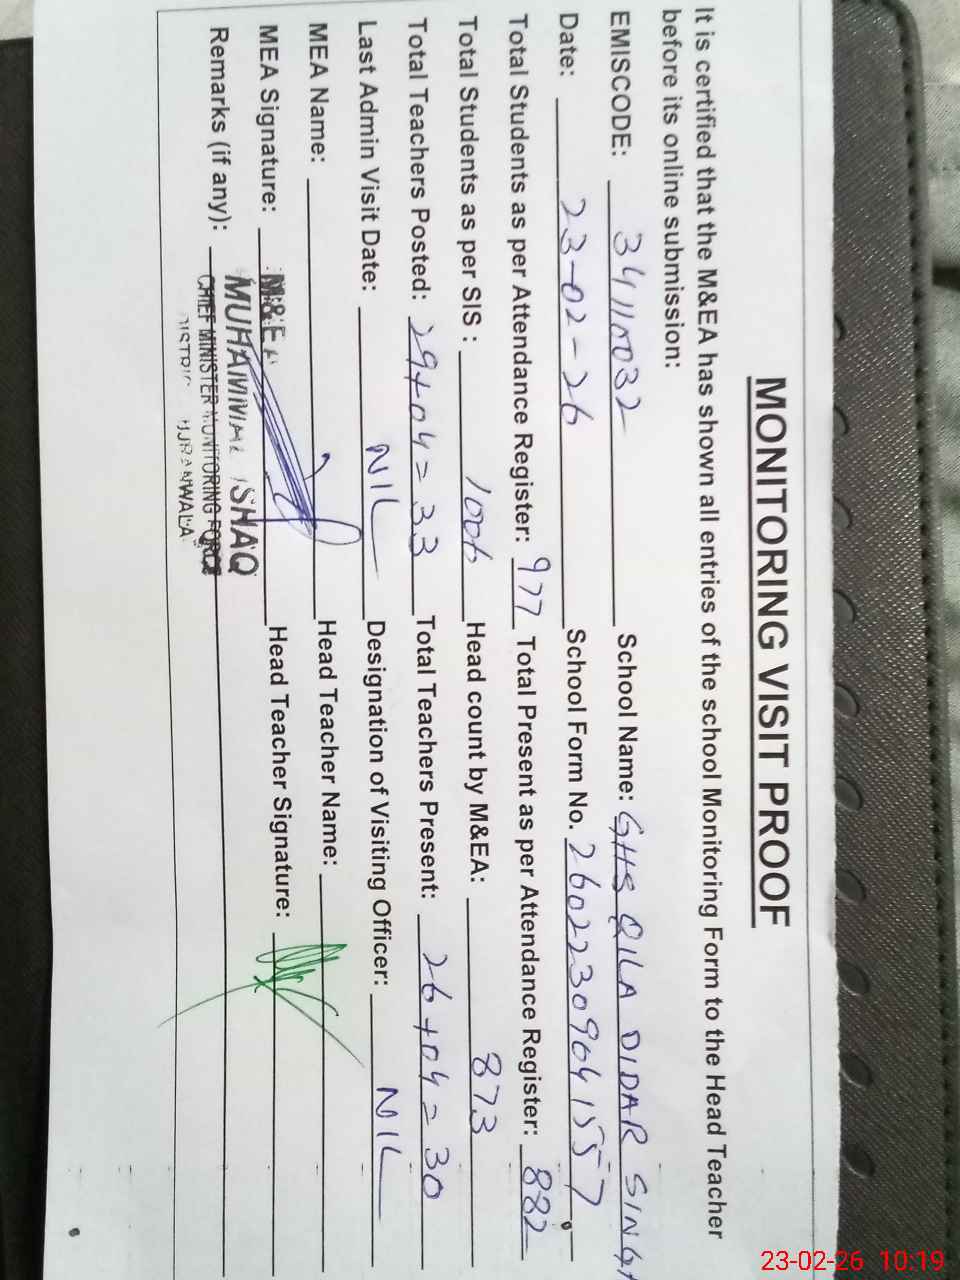 MONITORING VISIT PROOF
It is certified that the M&EA has shown all entries of the school Monitoring Form to the Head Teacher
before its online submission:
EMISCODE: 34110032 School Name: GHS QILA DIDAR SINGH
Date: 23-02-26 School Form No. 2602230904157
Total Students as per Attendance Register: 977 Total Present as per Attendance Register: 882
Total Students as per SIS : 1006 Head count by M&EA: 873
Total Teachers Posted: 29+04=33 Total Teachers Present: 26+04=30
Last Admin Visit Date: NIL Designation of Visiting Officer: NIL
MEA Name: Head Teacher Name:
MEA Signature: M&EA Head Teacher Signature:
MUHAMMAD ISHAQ
Remarks (if any): CHIEF MINISTER MONITORING FORCE
DISTRICT GUJRANWALA
23-02-26 10:19